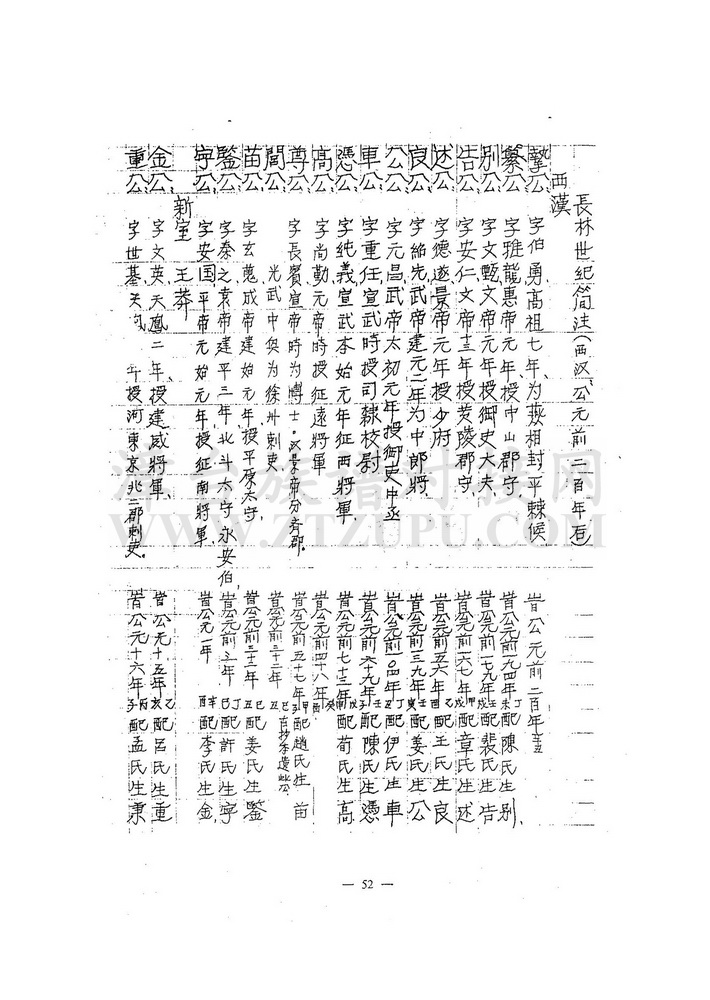 長林世纪简注(西汉、公元前二百年右)
西漢
摯公 字伯勇高祖七年、为燕相封平棘候 当公元前二百年辛丑
鰲公 字雅龍惠帝元年授中山郡守、当公元前一九四年丁未配陳氏生別、
別公 字文甄文帝元年授御史大夫、当公元前一七九年壬戌配裴氏生告
告公 字安仁文帝十三年授茂陵郡守、当公元前一六七年甲戌配章氏生述
述公 字德遂景帝元年授少府 当公元前一五六年乙酉配王氏生良
良公 字紹先武帝建元二年为中郎將、当公元前一三九年壬寅配姜氏生公
公公 字元昌武帝太初元年授御史中丞 当公元前一〇四年丁丑配伊氏生車
車公 字重任、宣武时授司隸校尉 当公元前六十九年壬子配陳氏生憑
憑公 字純義宣武本始元年征西將軍、当公元前七十三年戊申配荀氏生高
高公 字尚勤元帝時授征遠將軍 当公元前四十八年癸酉
尊公 字長賓宣帝時为博士 汉景帝分齐郡、当公元前五十七年甲子配趙氏生苗
閭公 光武中兴为徐州刺吏 当公元前三十二年己丑
苗公 字玄蒐成帝建始元年、授平原太守、当公元前三十二年己丑配姜氏生鑒
鑒公 字泰之哀帝建平三年北斗太守永安伯、当公元前三年丁巳配許氏生寧
寧公 字安国、平帝元始元年、授征南將軍、当公元一年辛酉配李氏生金、
新室 王莽
金公、字文英天鳳二年、授建威將軍、当公元十五年乙亥配吕氏生重
重公、字世基天鳳 年授河東京兆二郡刺吏。当公元十六年丙子配孟氏生秉
— 52 —
漳台族譜对接网
WWW.ZTZUPU.COM